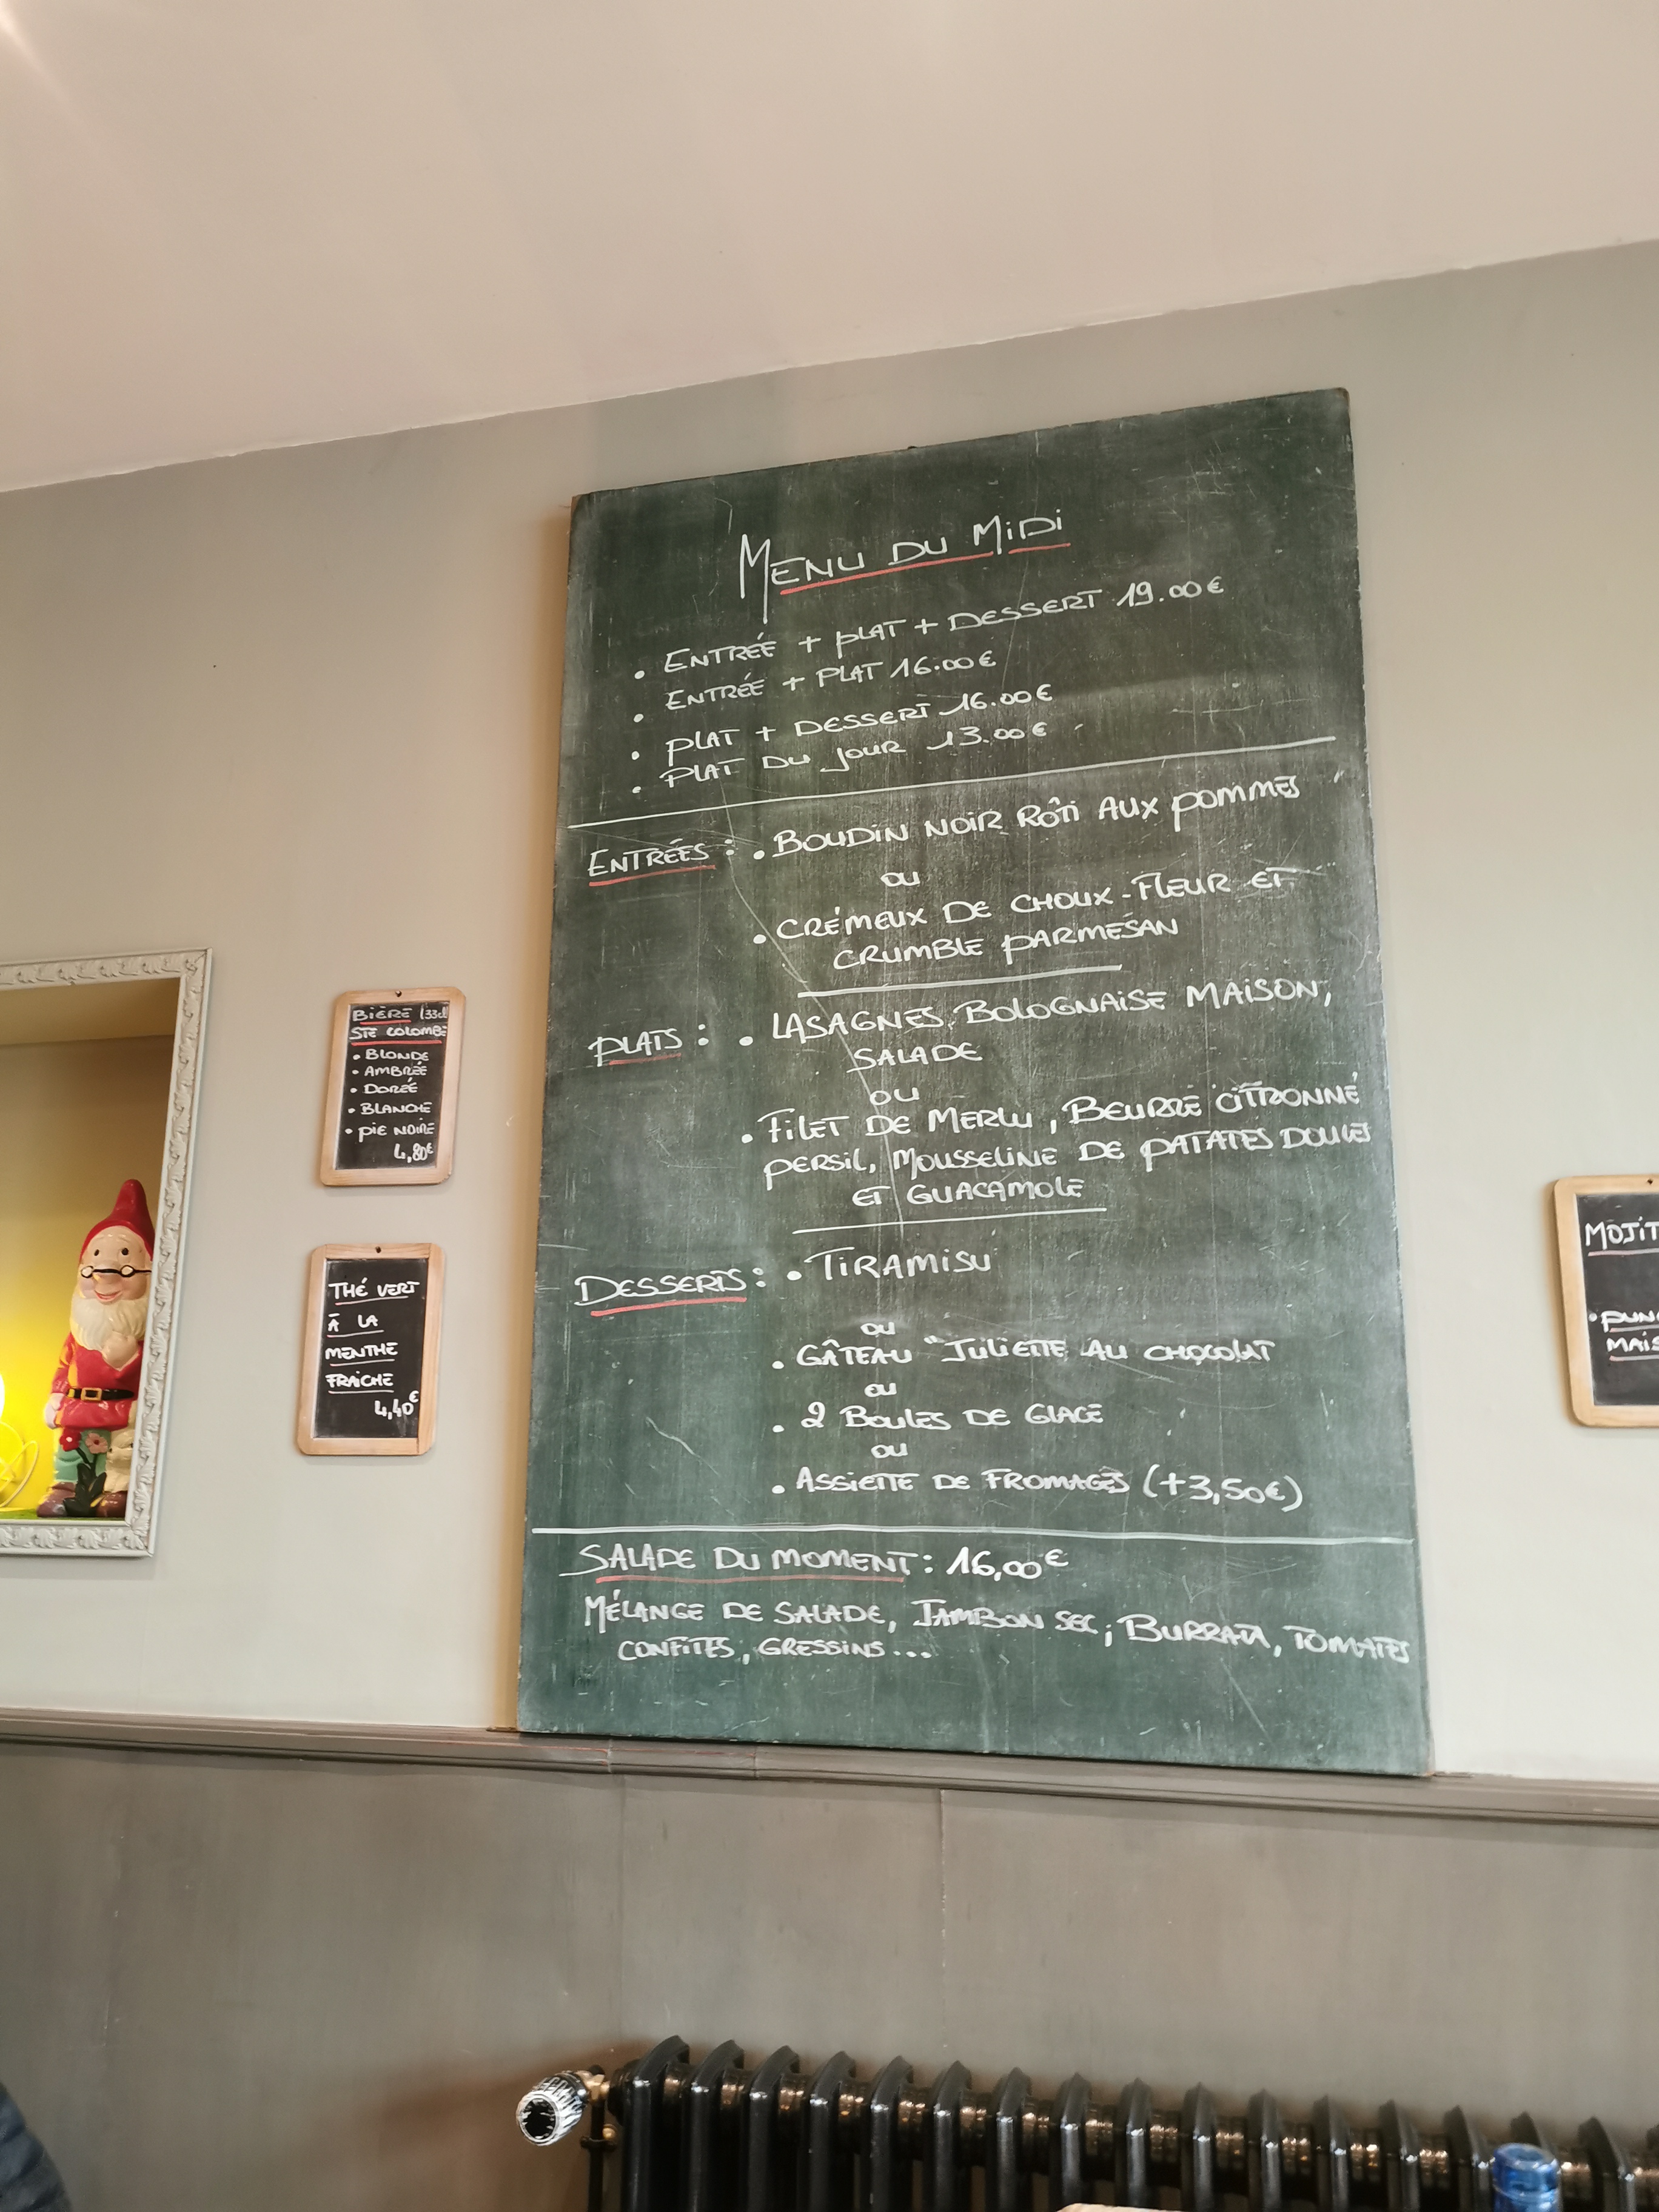 MENU DU MIDI
• ENTRÉE + PLAT + DESSERT 19.00€
• ENTRÉE + PLAT 16.00€
• PLAT + DESSERT 16.00€
• PLAT DU JOUR 13.00€
ENTRÉES : • BOUDIN NOIR RÔTI AUX POMMES
OU
• CRÉMEUX DE CHOUX-FLEUR ET
CRUMBLE PARMESAN
PLATS : • LASAGNES, BOLOGNAISE MAISON,
SALADE
OU
• FILET DE MERLU, BEURRE CITRONNÉ
PERSIL, MOUSSELINE DE PATATES DOUCES
ET GUACAMOLE
DESSERTS : • TIRAMISU
OU
• GÂTEAU "JULIETTE AU CHOCOLAT
OU
• 2 BOULES DE GLACE
OU
• ASSIETTE DE FROMAGES (+3,50€)
SALADE DU MOMENT : 16,00€
MÉLANGE DE SALADE, JAMBON SEC, BURRATA, TOMATES
CONFITES, GRESSINS...
BIÈRE (33cl
STE COLOMBE
• BLONDE
• AMBRÉE
• DORÉE
• BLANCHE
• PIE NOIRE
4,80€
THÉ VERT
À LA
MENTHE
FRAICHE
4,40€
MOJIT
• PUNC
MAIS